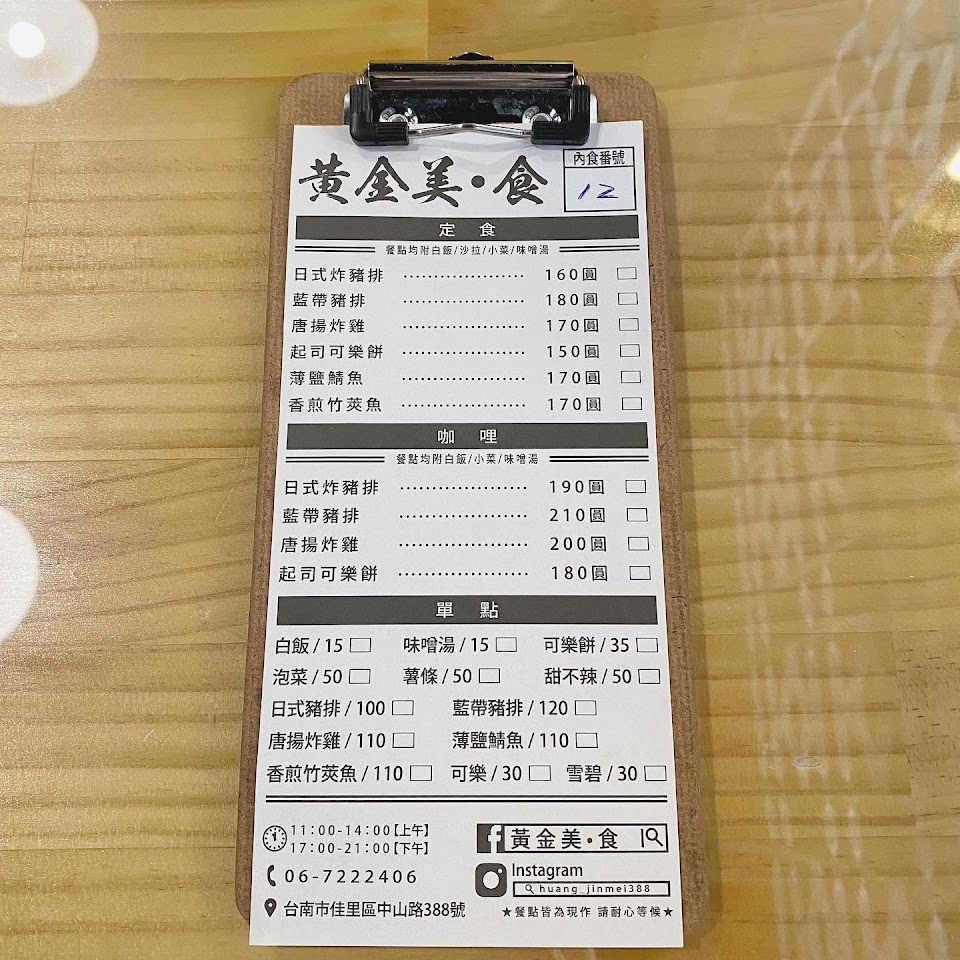 黃金美·食
內食番號
12
定食
餐點均附白飯/沙拉/小菜/味噌湯
日式炸豬排 ⋯⋯⋯⋯⋯⋯⋯ 160圓 □
藍帶豬排 ⋯⋯⋯⋯⋯⋯⋯ 180圓 □
唐揚炸雞 ⋯⋯⋯⋯⋯⋯⋯ 170圓 □
起司可樂餅 ⋯⋯⋯⋯⋯⋯⋯ 150圓 □
薄鹽鯖魚 ⋯⋯⋯⋯⋯⋯⋯ 170圓 □
香煎竹莢魚 ⋯⋯⋯⋯⋯⋯⋯ 170圓 □
咖哩
餐點均附白飯/小菜/味噌湯
日式炸豬排 ⋯⋯⋯⋯⋯⋯⋯ 190圓 □
藍帶豬排 ⋯⋯⋯⋯⋯⋯⋯ 210圓 □
唐揚炸雞 ⋯⋯⋯⋯⋯⋯⋯ 200圓 □
起司可樂餅 ⋯⋯⋯⋯⋯⋯⋯ 180圓 □
單點
白飯/15 □ 味噌湯/15 □ 可樂餅/35 □
泡菜/50 □ 薯條/50 □ 甜不辣/50 □
日式豬排/100 □ 藍帶豬排/120 □
唐揚炸雞/110 □ 薄鹽鯖魚/110 □
香煎竹莢魚/110 □ 可樂/30 □ 雪碧/30 □
11:00-14:00【上午】
17:00-21:00【下午】
06-7222406
台南市佳里區中山路388號
黃金美·食
Instagram
huang_jinmei388
★餐點皆為現作 請耐心等候★